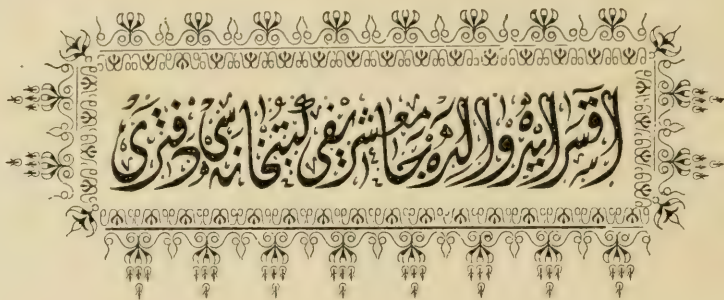 اقسرايده والده جامع شريفى كتبخانه سى دفترى